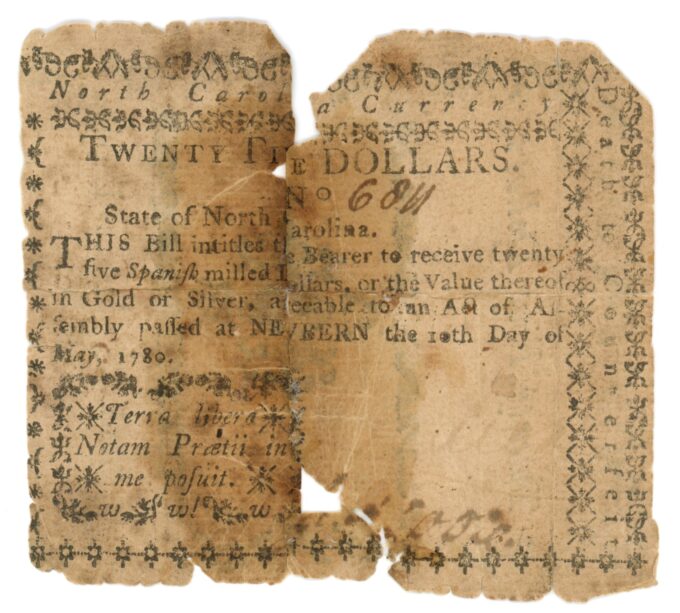 North Carol a Currency
TWENTY FI E DOLLARS.
No
State of North Carolina.
THIS Bill intitles the Bearer to receive twenty
five Spaniſh milled Dollars, or the Value thereof
in Gold or Silver, a eeable to an Act of Aſ-
ſembly paſſed at NEWBERN the 10th Day of
May, 1780.
Terra libera
Notam Prætii in
me poſuit.
Death to Counterfeit